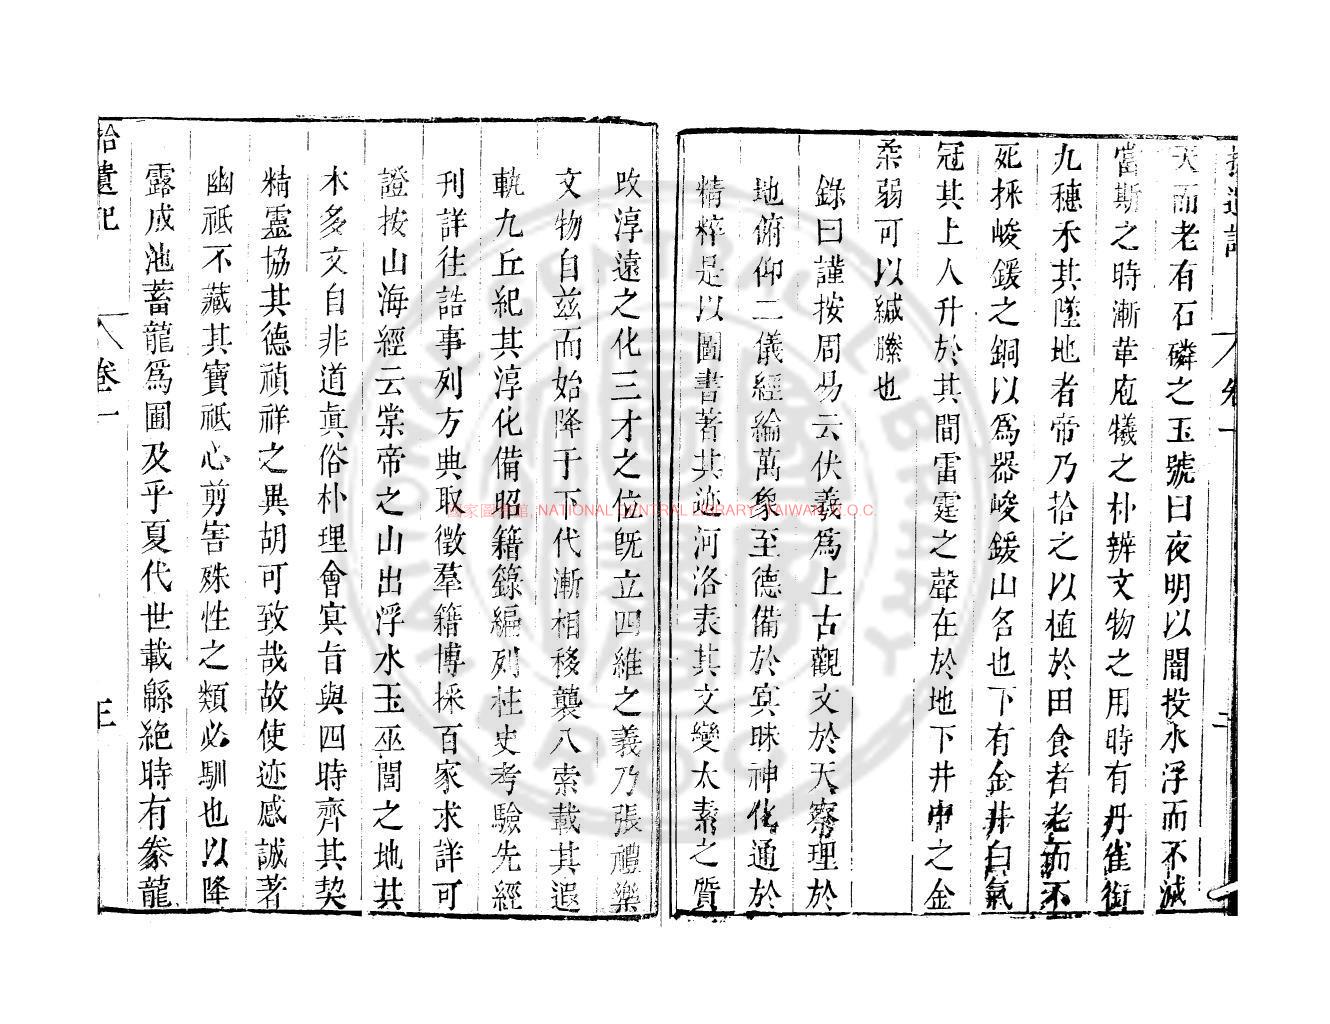 天而老有石磷之玉號曰夜明以闇投水浮而不滅
當斯之時漸革庖犧之朴辨文物之用時有丹雀銜
九穗禾其墜地者帝乃拾之以植於田食者老而不
死採峻鍰之銅以爲器峻鍰山名也下有金井白氣
冠其上人升於其間雷霆之聲在於地下井中之金
柔弱可以緘縢也
錄曰謹按周易云伏羲爲上古觀文於天察理於
地俯仰二儀經綸萬象至德備於冥昧神化通於
精粹是以圖書著其迹河洛表其文變太素之質
改淳遠之化三才之位旣立四維之義乃張禮樂
文物自茲而始降于下代漸相移襲八索載其遐
軌九丘紀其淳化備昭籍籙編列柱史考驗先經
刊詳往誥事列方典取徵羣籍博採百家求詳可
證按山海經云棠帝之山出浮水玉巫閭之地其
木多文自非道眞俗朴理會冥旨與四時齊其契
精靈協其德禎祥之異胡可致哉故使迹感誠著
幽祗不藏其寶祗心剪害殊性之類必馴也以降
露成池蓄龍爲圃及乎夏代世載緜絕時有豢龍
拾遺記
卷一
三
國家圖書館 NATIONAL CENTRAL LIBRARY, TAIWAN R O C